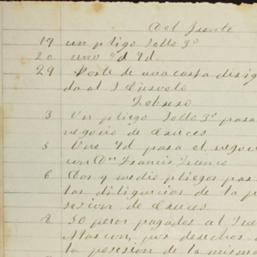 Del frente
19 un pliego sello 3º
20 uno id id.
29 Porte de una carta dirigi
da al J.
Febrero
3 Un pliego sello 3º para
negocio de Cauces
5 Uno id para el negocio
con Dn Francis
6 Dos y medio pliegos pa
las diligencias de la p
sesion de Cauces
8 30 pesos pagados al Jue
por derechos d
la posesion de la misma